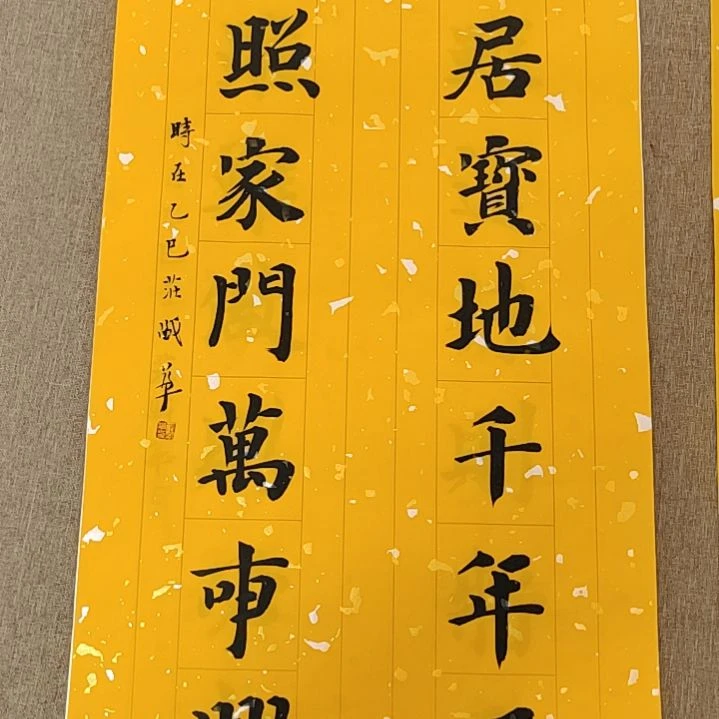 居寶地千年
照家門萬事興
時在乙巳莊